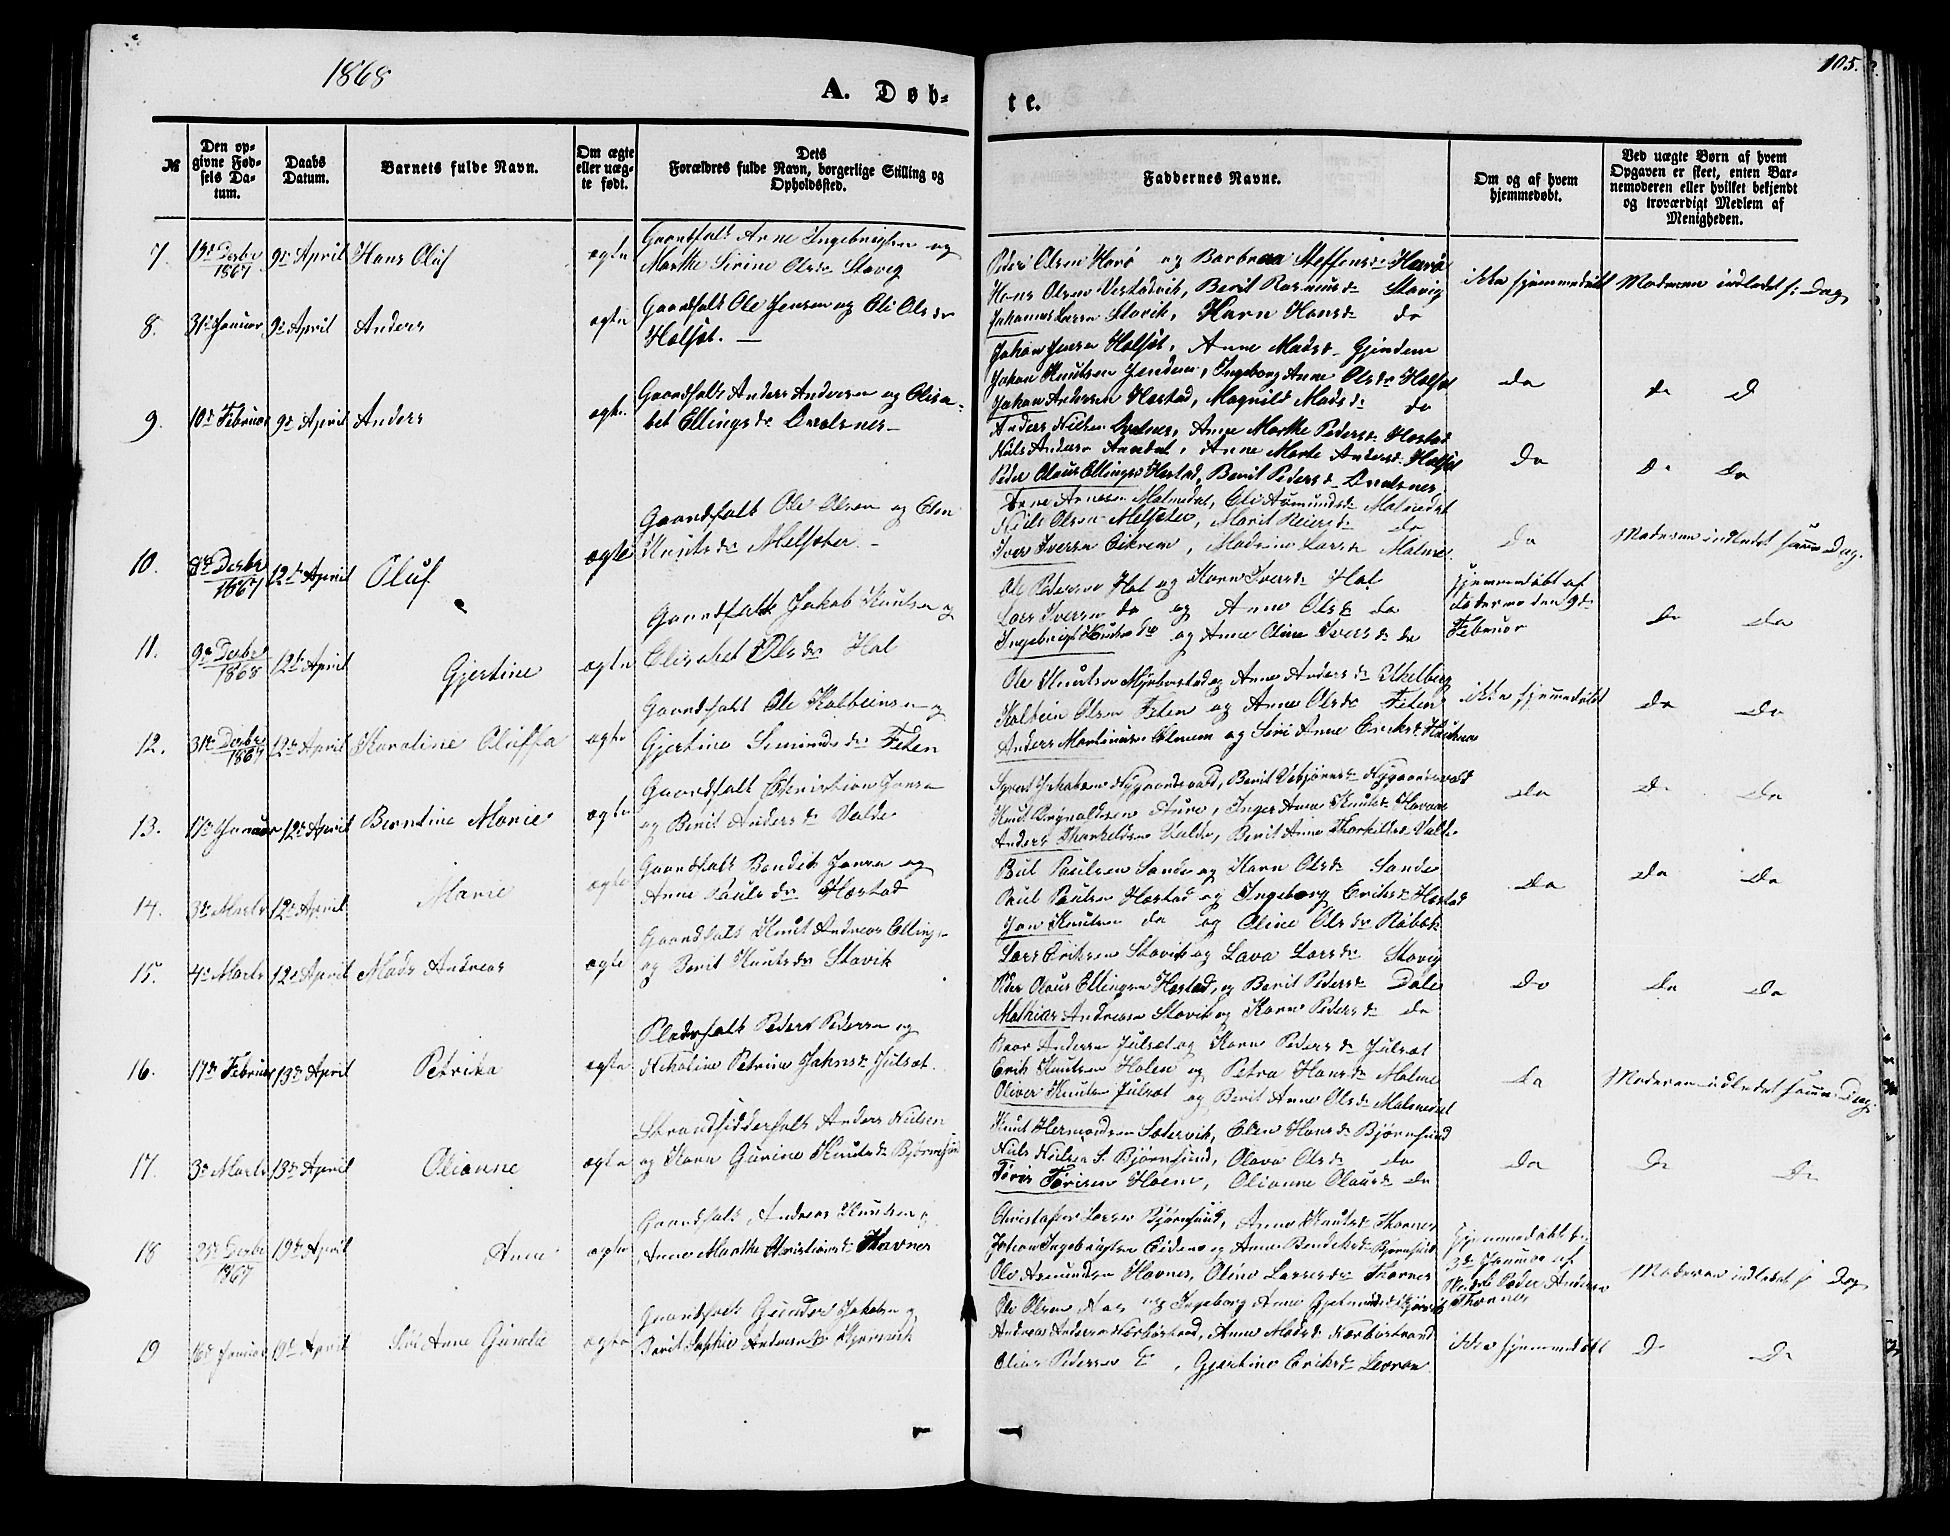 1868
A. Døb-
te.
105.
№
Den op-
givne Fød-
sels Da-
tum.
Daabs
Datum.
Barnets fulde Navn.
Om ægte
eller uæg-
te født.
Dets
Forældres fulde Navn, borgerlige Stilling og
Opholdssted.
Faddernes Navne.
Om og af hvem
hjemmedøbt.
Ved uægte Børn af hvem
Opgaven er skeet, enten Bar-
nemoderen eller hvilket bekjendt
og troværdigt Medlem af
Menigheden.
7. 13de Desbr 1867 9de April Hans Oluf ægte
Gaardfolk Arne Ingebrigtsen og
Marthe Sirine Olsdr Stavig
Peder Olsen Harø og Barbraa Steffensdr Harø
Hans Olsen Vestadvik, Berit Rasmusdr Stavig
Johannes Larsen Stavik, Karn Hansdr do
ikke hjemmedøbt
Moderen indledet s: Dag
8. 31te Januar 9de April Anders ægte
Gaardfolk Ole Jensen og Eli Olsdr
Halsøt.
Johan Jensen Halsøt, Anne Madsd. Gjendem
Johan Knutsen Jendem, Ingeborg Anne Olsdr Halsøt
Johan Andersen Hostad, Magnild Madsdr do
do
do D
9. 10de Februar 9de April Anders ægte
Gaardfolk Anders Andersen og Elisa-
bet Ellingsdr Dvalsnes
Anders Nielsen Dvalsnes, Anne Marthe Pedersdr Hostad
Niels Andersen, Anne Marte Andersdr Halsøt
Peder Olaus Ellingsen Hostad, Berit Pedersdr Dvalsnes
do
do do
10. 8de Desbr 1867 12te April Oluf ægte
Gaardfolk Ole Olsen og Elen
Knutsdr Melsæter
Arne Arnesen Malmedal, Eli Aamundsdr Malmedal
Niels Olsen Melsæter, Marit Reiersdr do
Iver Iversen Eikrem, Madsine Larsdr Malme
do
Moderen indledet samme Dag.
11. 9de Desbr 1868 12te April Gjertine ægte
Gaardfolk Jakob Knutsen og
Elisabet Olsdr Hol
Ole Pedersen Hol og Karn Iversdr Hol
Lars Iversen do og Anne Olsdr do
Ingebrigt Knutsen do og Anne Oline Iversdr do
hjemmedøbt af
Fadderne den 9de
Februar
do do
12. 31te Desbr 1867 12te April Karoline Oluffa ægte
Gaardfolk Ole Kolbeinsen og
Gjertine Simundsdr Feten
Ole Knutsen Myrbostad og Anne Andersdr Ikelberg
Kolbein Olsen Feten og Anne Olsdr Feten
Anders Martinusen Elnem og Siri Anne Eriksdr
ikke hjemmedøbt
do do
13. 11te Januar 12te April Berntine Marie ægte
Gaardfolk Christian Jonsen
og Berit Andersdr Valde
Nygaardsvold, Berit Nygaardsvold
Knut Aure, Inger Anne Knutsdr
Anders Thorkildsen Valde, Berit Anne Thorkildsdr Valde
do
do do
14. 3de Marts 12te April Marie ægte
Gaardfolk Bendik Jonsen og
Anne Paulsdr Hostad
Paulsen Sande og Karn Olsdr Sande
Paul Paulsen Hostad og Ingeborg Eriksdr Hostad
Jon Knutsen do og Oline Olsdr Røbæk
do
do do
15. 4de Marts 12te April Mads Andreas ægte
Gaardfolk Knut Andreas Ellings.
og Berit Knutsdr Stavik
Lars Eriksen Stavik og Lava Larsdr Stavig
Peder Olaus Ellingsen Hostad, og Berit Pedersdr Dale
Mathias Andreasen Stavik og Karn Pedersdr do
do
do do
16. 17de Februar 13de April Petrika ægte
Pladsfolk Peder Pedersen og
Nikoline Petrine Johnsdr Julsæt.
Andersen Julsæt og Karn Pedersdr Julsæt
Erik Knutsen Holen og Petra Hansdr Malme
Oliver Knutsen Julsæt og Berit Anne Olsdr Malmedal
do
Moderen indledet samme Dag
17. 3de Marts 13de April Olianne ægte
Strandsidderfolk Anders Nielsen
og Karn Gurine Knutsdr Bjørnsund
Knut Hermandsen Sætervik, Elen Hansdr Bjørnsund
Niels Nielsen S. Bjørnsund, Olava Olsdr do
Tøris Tørisen Hoem, Olianne Olausdr do
do
do do
18 25de Desbr 1867 19de April Anne ægte
Gaardfolk, Andreas Knutsen og
Anne Marthe Christiansdr Havnes
Christofer Larsen Bjørnsund, Anne Knutsdr Thornes
Johan Ingebrigtsen Eidem og Anne Bendiksdr Bjørnsund
Ole Asmundsen Havnes, Oline Larsdr Thornes
hjemmedøbt den
3de Januar af
Peder Andersen
Thornes
Moderen indledet s: Dag
19 16de Januar 19de April Siri Anne Gunelie ægte
Gaardfolk Gunder Jakobsen og
Berit Sophie Andersdr
Ole Olsen Aas og Ingeborg Anne
Andreas Andersen, Anne Madsdr
Elias Pedersen do, Gjertine Eriksdr
ikke hjemmedøbt
do do